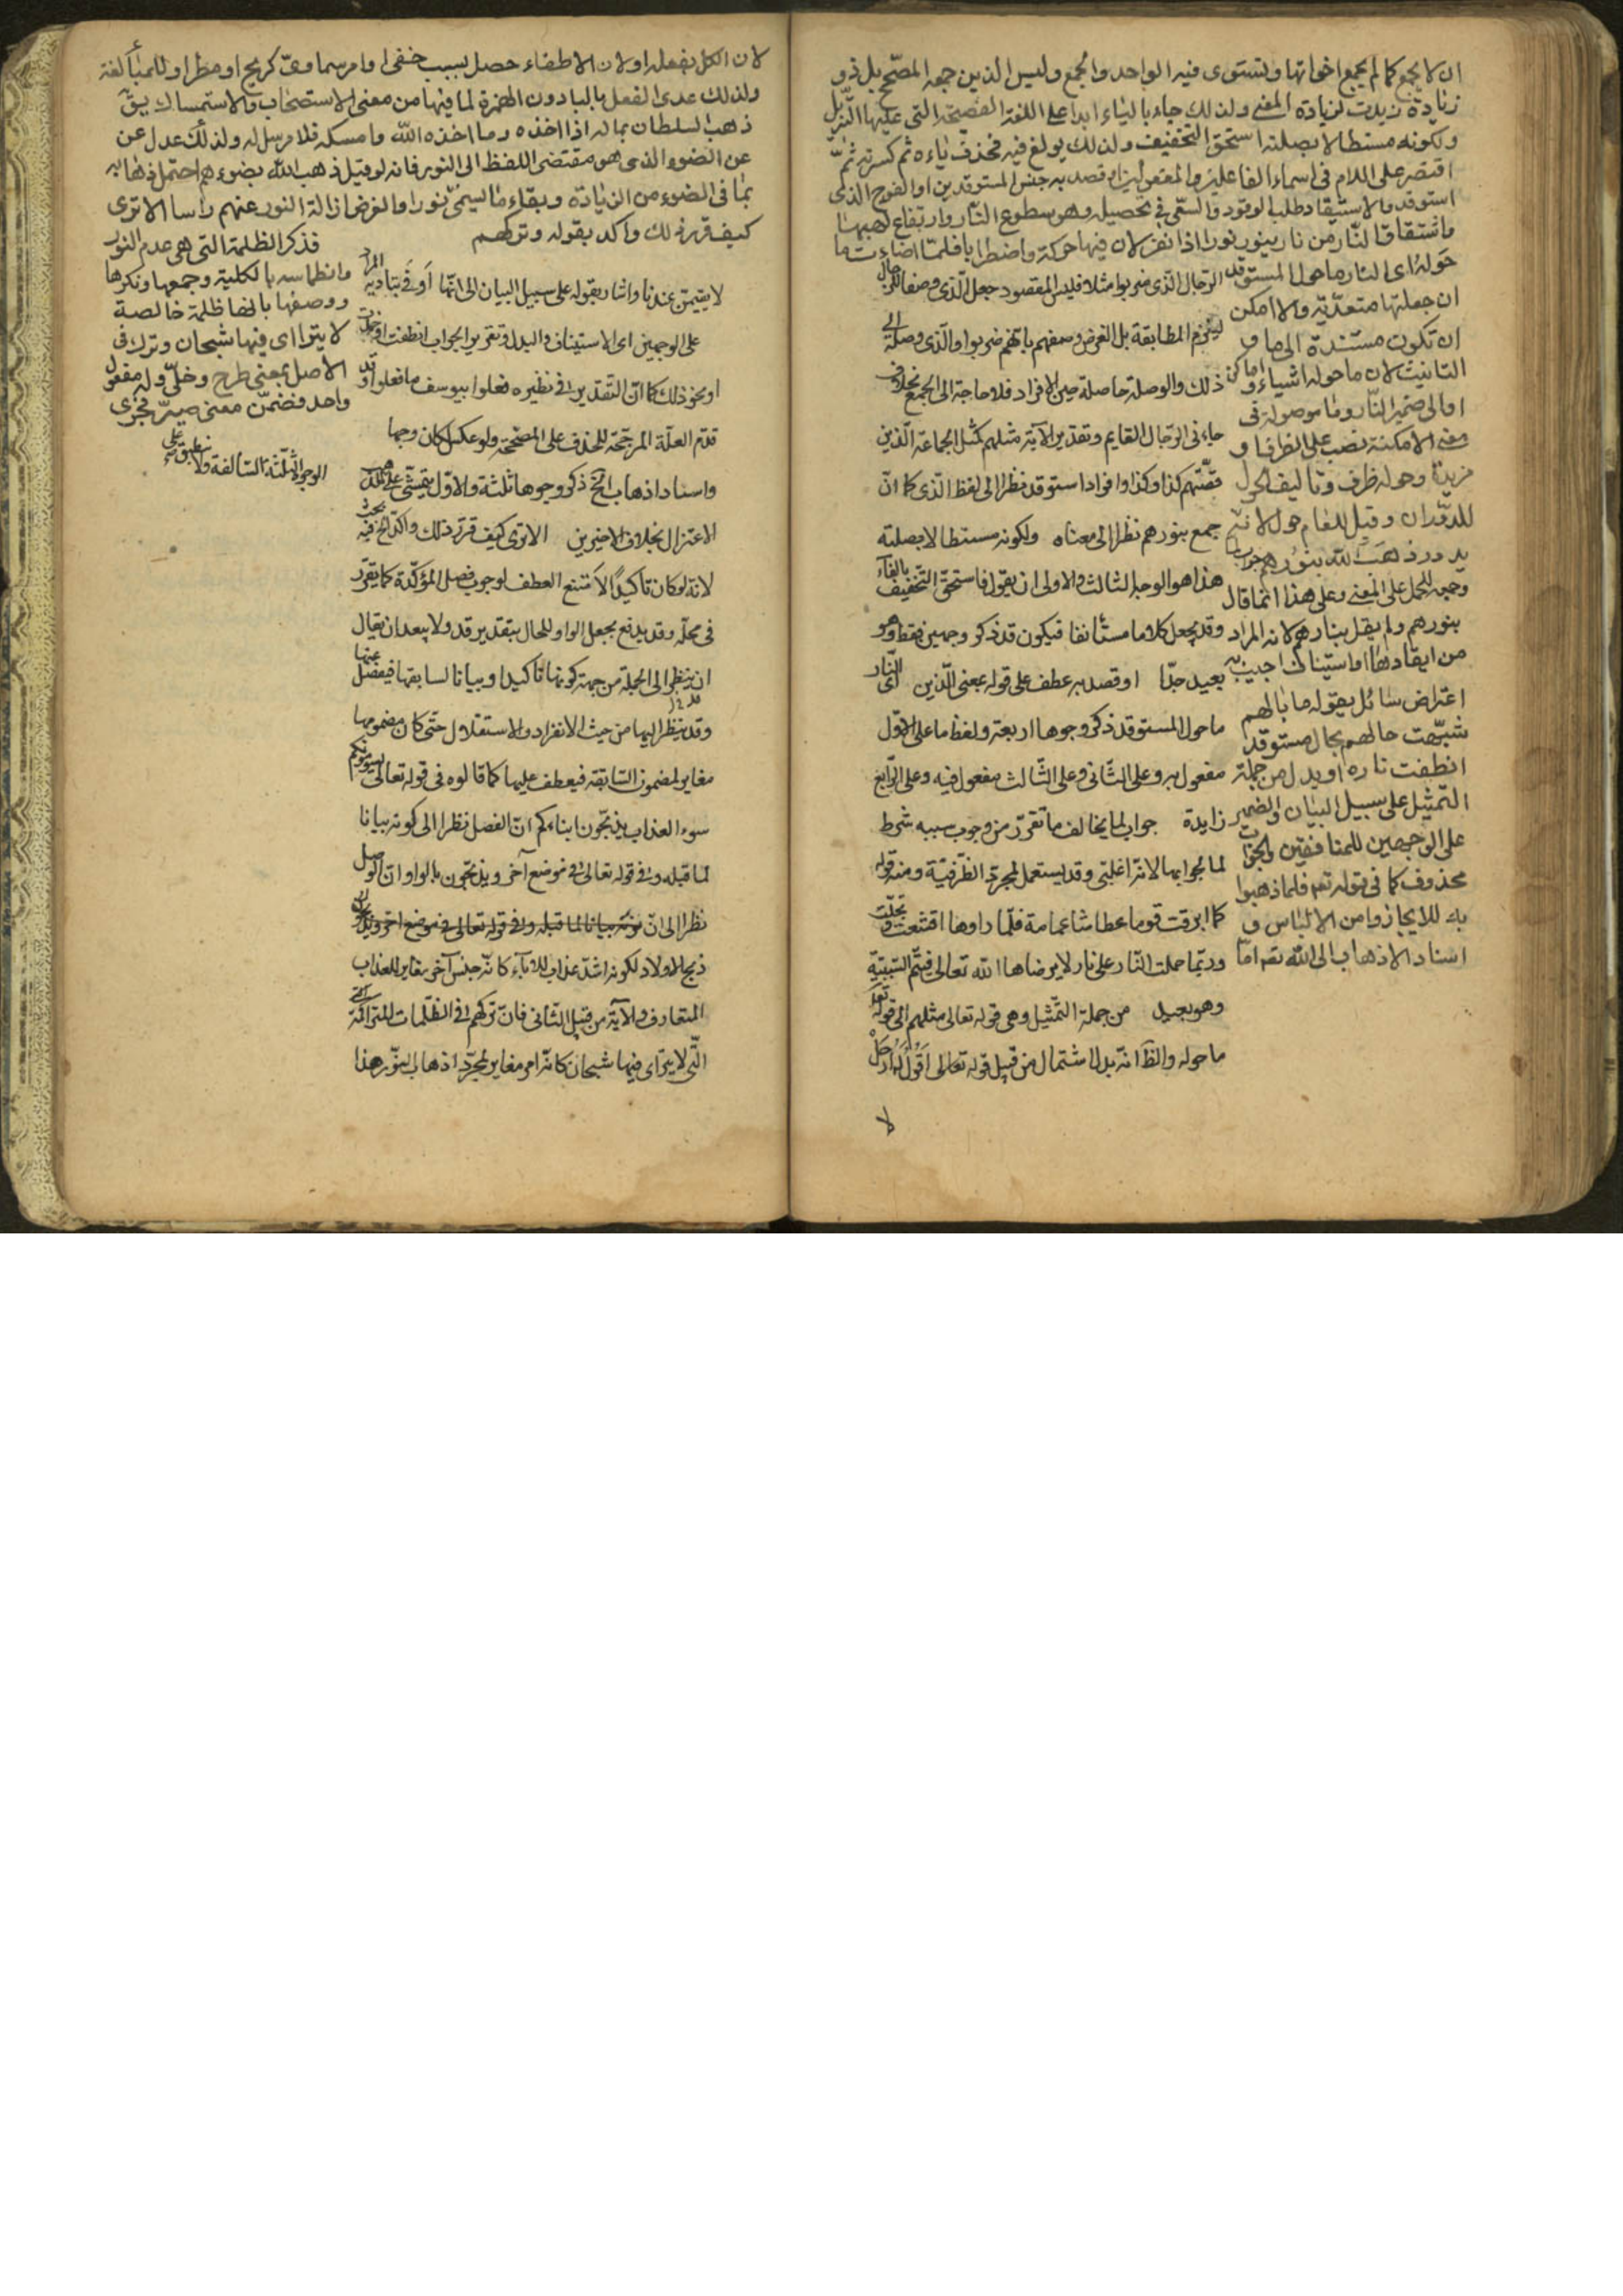 ان لا يجمع كما لم يجمع اخواتها ويستوى فيه الواحد والجمع وليس الذين جمعه المصحح بل ذو
زيادة زيدت لزيادة المعنى ولذلك جاء بالياء ابدا على اللغة الفصيحة التى عليها التنزيل
ولكونه مستطالا بصلته استحق التخفيف ولذلك بولغ فيه فحذف ياءه ثم كسرته ثم
اقتصر على اللام فى اسماء الفاعلين والمفعولين او قصد به جنس المستوقدين او الفوج الذى
استوقد والاستيقاد طلب الوقود والسعى فى تحصيله وهو سطوع النار وارتفاع لهبها
واشتقاق النار من نار ينور نورا اذا نفر لان فيها حركة واضطرابا فلما اضاءت ما
حوله اى النار ما حول المستوقد
ان جعلتها متعدية والا امكن
ان تكون مستندة الى ما و
التانيث لان ما حوله اشياء واماكن
او الى ضمير النار وما موصولة فى
معنى الامكنة نصب على الظرف او
مزيدة وحوله ظرف وتاليف الحول
للدوران وقيل للعام حول لانه
يدور ذهب الله بنورهم جواب لما
وجمعه للحمل على المعنى وعلى هذا انما قال
بنورهم ولم يقل بنارهم لانه المراد
من ايقادها او استيناف اجيب به
اعتراض سائل يقول ما بالهم
شبهت حالهم بحال مستوقد
انطفت ناره او بدل من جملة
التمثيل على سبيل البيان والضمير
على الوجهين للمنافقين والجواب
محذوف كما فى قوله تعم فلما ذهبوا
به للايجاز وامن الالتباس و
اسناد الاذهاب الى الله تعم اما
الرجال الذى ضربوا مثلا فليس المقصود جعل الذى وصفا للرجال
ليلزم المطابقة بل الغرض وصفهم بانهم ضربوا والذى وصلة الى
ذلك والوصلة حاصلة حين الافراد فلا حاجة الى الجمع بخلاف
جاءنى الرجال القايم وتقدير الآية مثلهم كمثل الجماعة الذين
قصتهم كذا وكذا وافراد استوقد نظرا الى لفظ الذى كما ان
جمع بنورهم نظرا الى معناه ولكونه مستطالا بصلته
هذا هو الوجه الثالث والاولى ان يقول فاستحق التخفيف بالفاء
وقد يجعل كلاما مستأنفا فيكون قد ذكر وجهين فقط وهو
بعيد جدا او قصد به عطف على قوله بمعنى الذين اى النار
ما حول المستوقد ذكر وجوها اربعة ولفظ ما على الاول
مفعول به وعلى الثانى وعلى الثالث مفعول فيه وعلى الرابع
زايدة جواب لما يخالف ما تقرر من وجوب سببه شرط
لما لجوابها لانه اغلبى وقد يستعمل لمجرد الظرفية ومنه قوله
كما ابرقت قوما عطاشا غمامة فلما راوها اقشعت وتجلت
وربما حملت النار على نار لا يرضاها الله تعالى فيتم السببية
وهو بعيد من جملة التمثيل وهى قوله تعالى مثلهم الى قوله تعم
ما حوله والظ انه بدل اشتمال من قبيل قوله تعالى اقول له ارحل
لا
لان الكل بفعله او لان الاطفاء حصل بسبب خفى او امر سماوى كريح او مطر او للمبالغة
ولذلك عدى الفعل بالباء دون الهمزة لما فيها من معنى الاستصحاب والاستمساك يقال
ذهب السلطان بماله اذا اخذه وما اخذه الله وامسكه فلا مرسل له ولذلك عدل عن
عن الضوء الذى هو مقتضى اللفظ الى النور فانه لو قيل ذهب الله بضوءهم احتمل ذهابه
بما فى الضوء من الزيادة وبقاء ما يسمى نورا والغرض ازالة النور عنهم راسا الا ترى
كيف قرر ذلك واكد بقوله وتركهم
فذكر الظلمة التى هى عدم النور
وانطماسه بالكلية وجمعها ونكرها
ووصفها بانها ظلمة خالصة
لا يتراى فيها شبحان وترك فى
الاصل بمعنى طرح وخلى وله مفعول
واحد فضمن معنى صير فجرى
لا تقيمن عندنا واشار بقوله على سبيل البيان الى انها اوفى بتادية المراد
على الوجهين اى الاستيناف والبدل وتقرير الجواب انطفت او خمدت
او نحو ذلك كما ان التقدير فى نظيره فعلوا بيوسف ما فعلوا وقد
قدم العلة المرجحة للحذف على المصححة ولو عكس لكان وجها
الوجوه الثلثة السالفة ولا ينطبق على
واسناد اذهاب الخ ذكر وجوها ثلثة والاول يتمشى على مذهب
الاعتزال بخلاف الاخيرين الا ترى كيف قرر ذلك واكد الخ فيه بحث
لانه لو كان تاكيدا لامتنع العطف لوجوب فصل المؤكدة كما تقرر
فى محله وقد يدفع بجعل الواو للحال بتقدير قد ولا يبعد ان يقال
انه ينظر الى الجملة من جهة كونها تاكيدا وبيانا لسابقها فيفصل عنها
وقد ينظر اليها من حيث الانفراد والاستقلال حتى كان مضمونها
مغاير لمضمون السابقة فيعطف عليها كما قالوه فى قوله تعالى يسومونكم
سوء العذاب يذبحون ابناءكم ان الفصل نظرا الى كونه بيانا
لما قبله وفى قوله تعالى فى موضع آخر ويذبحون بالواو ان الوصل
نظرا الى ان
ذبح الاولاد لكونه اشد عذاب للاباء كانه جنس آخر مغاير للعذاب
المتعارف والآية من قبيل الثانى فان تركهم فى الظلمات المتراكمة
التى لا يتراى فيها شبحان كانه امر مغاير لمجرد اذهاب النور هذا